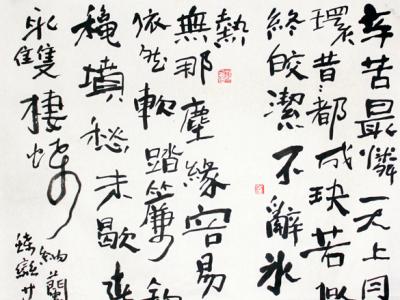 辛苦最憐天上月
環昔昔都成玦若似
終皎潔不辭冰
熱
無那塵緣容易
依然軟踏簾鉤
穐墳愁未歇春
取雙棲蝶
納蘭
蝶戀花